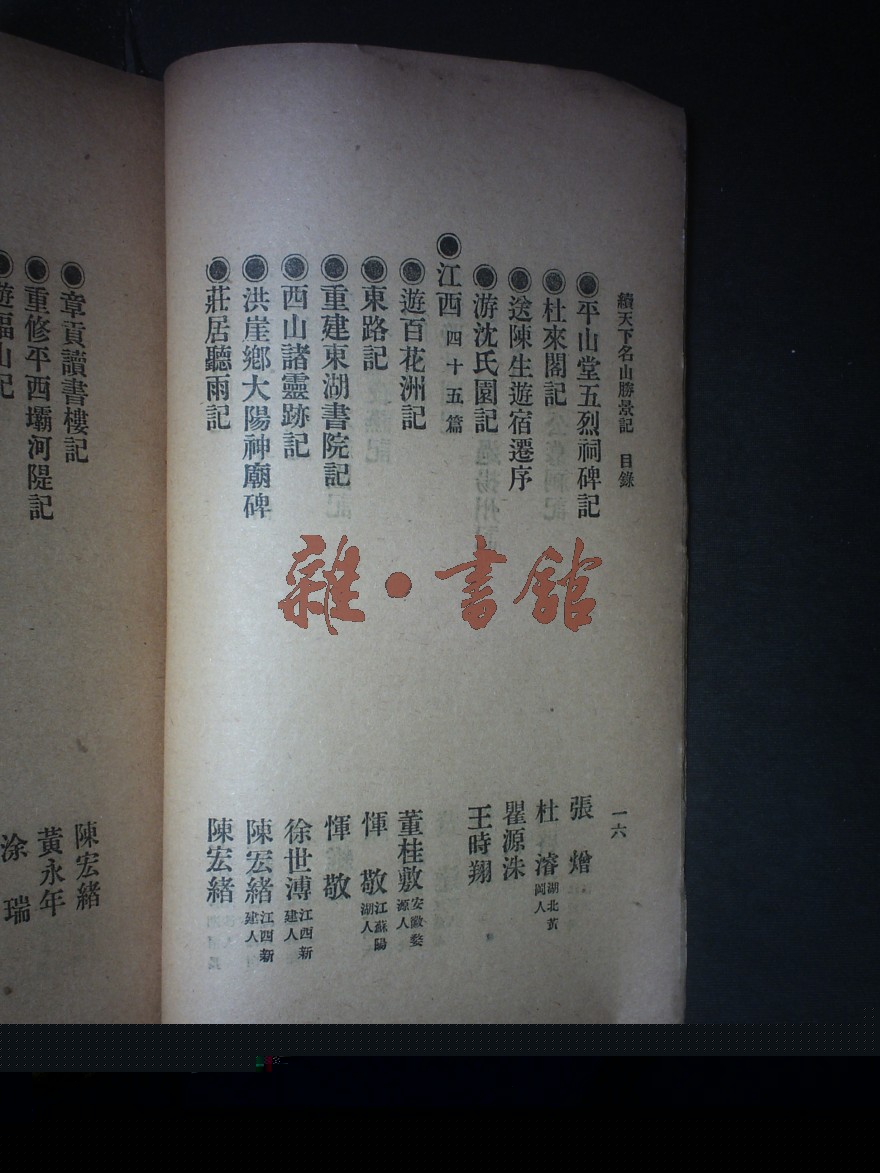 續天下名山勝景記 目錄 一六
◉平山堂五烈祠碑記 張燴
◉杜來閣記 杜濬 湖北黃岡人
◉送陳生遊宿遷序 瞿源洙
◉游沈氏園記 王時翔
◉江西 四十五篇
◉遊百花洲記 董桂敷 安徽婺源人
◉東路記 惲敬 江蘇陽湖人
◉重建東湖書院記 惲敬
◉西山諸靈跡記 徐世溥 江西新建人
◉洪崖鄉大陽神廟碑 陳宏緒 江西新建人
◉莊居聽雨記 陳宏緒
◉章貢讀書樓記 陳宏緒
◉重修平西壩河隄記 黃永年
◉遊福山記 涂瑞
雜•書館